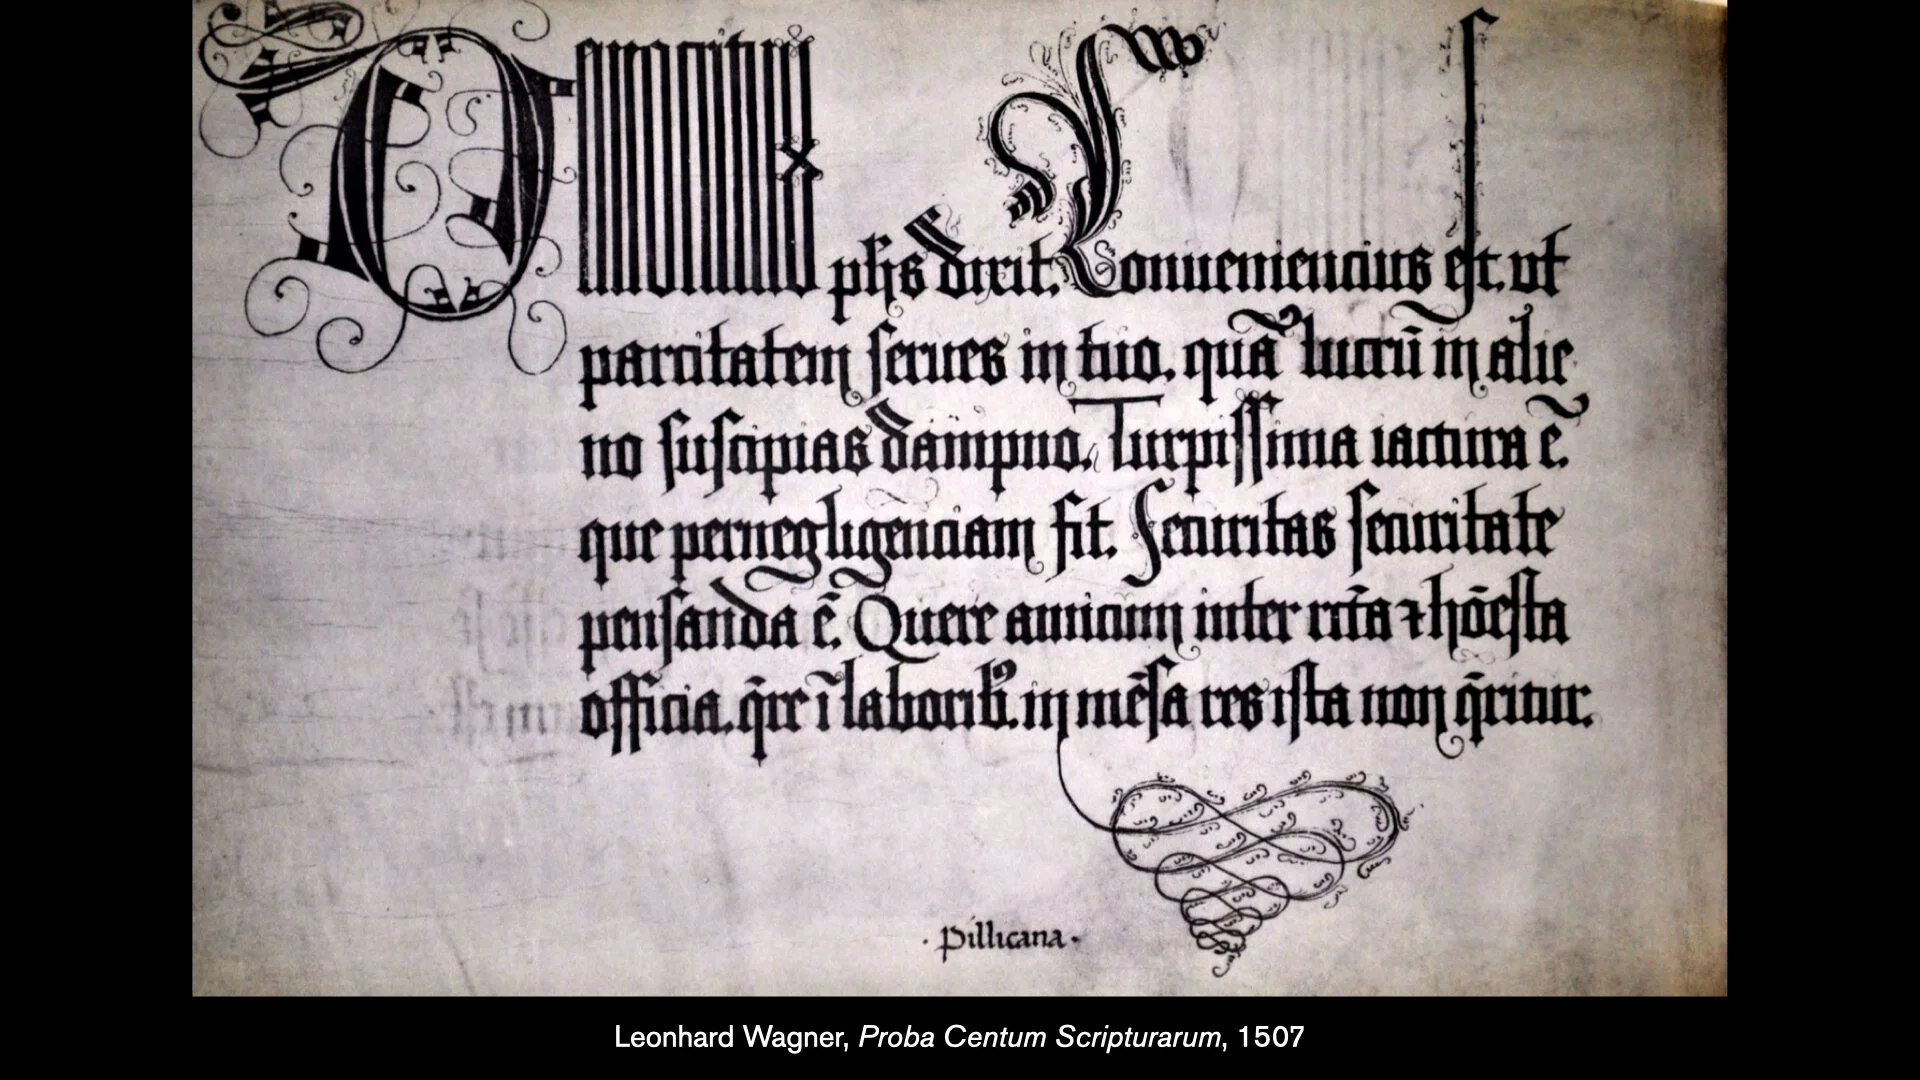 Democritus phs dixit. Conueniencius eſt. ut
parcitatem ſerues in tuo. quā lucrū in alie
no ſuſcipias dampno. Turpiſſima iactura ē.
que per negligenciam fit. Securitas ſecuritate
penſanda ē. Quere amicum inter rc̄ta ⁊ hōeſta
officia. q̄re ī laborib⁹. in mēſa res iſta non q̄ritur.
· Pillicana ·
Leonhard Wagner, Proba Centum Scripturarum, 1507